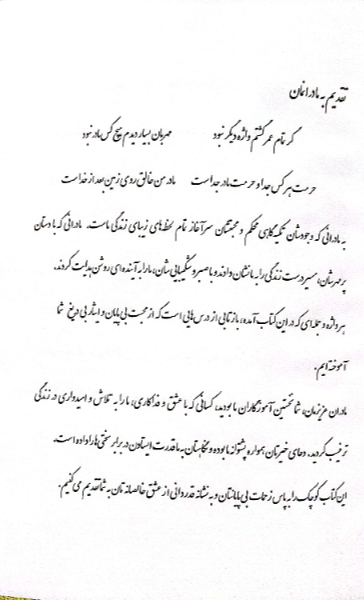 تقدیم به مادرانمان
گر تمام عمر گشتم واژه دیگر نبود مهربان بسیار دیدم هیچ کس مادر نبود
حرمت هر کس جدا و حرمت مادر جداست مادر من خالق روی زمین بعد از خداست
به مادرانی که وجودشان تکیه‌گاهی محکم و محبتشان سرآغاز تمام لحظه‌های زیبای زندگی ماست. مادرانی که با دستان
پر مهرشان، مسیر درست زندگی را به ما نشان دادند و با صبر و شکیبایی‌شان، ما را به آینده‌ای روشن هدایت کردند.
هر واژه و جمله‌ای که در این کتاب آمده، بازتابی از درس‌هایی است که از محبت بی‌پایان و ایثار بی‌دریغ شما
آموخته‌ایم.
مادران عزیزمان، شما نخستین آموزگاران ما بودید، کسانی که با عشق و فداکاری، ما را به تلاش و امیدواری در زندگی
ترغیب کردید. دعای خیرتان همواره پشتوانه ما بوده و نگاهتان به ما قدرت ایستادن در برابر سختی‌ها را داده است.
این کتاب کوچک را به پاس زحمات بی‌پایانتان و به نشانه قدردانی از عشق خالصانه‌تان به شما تقدیم می‌کنیم.